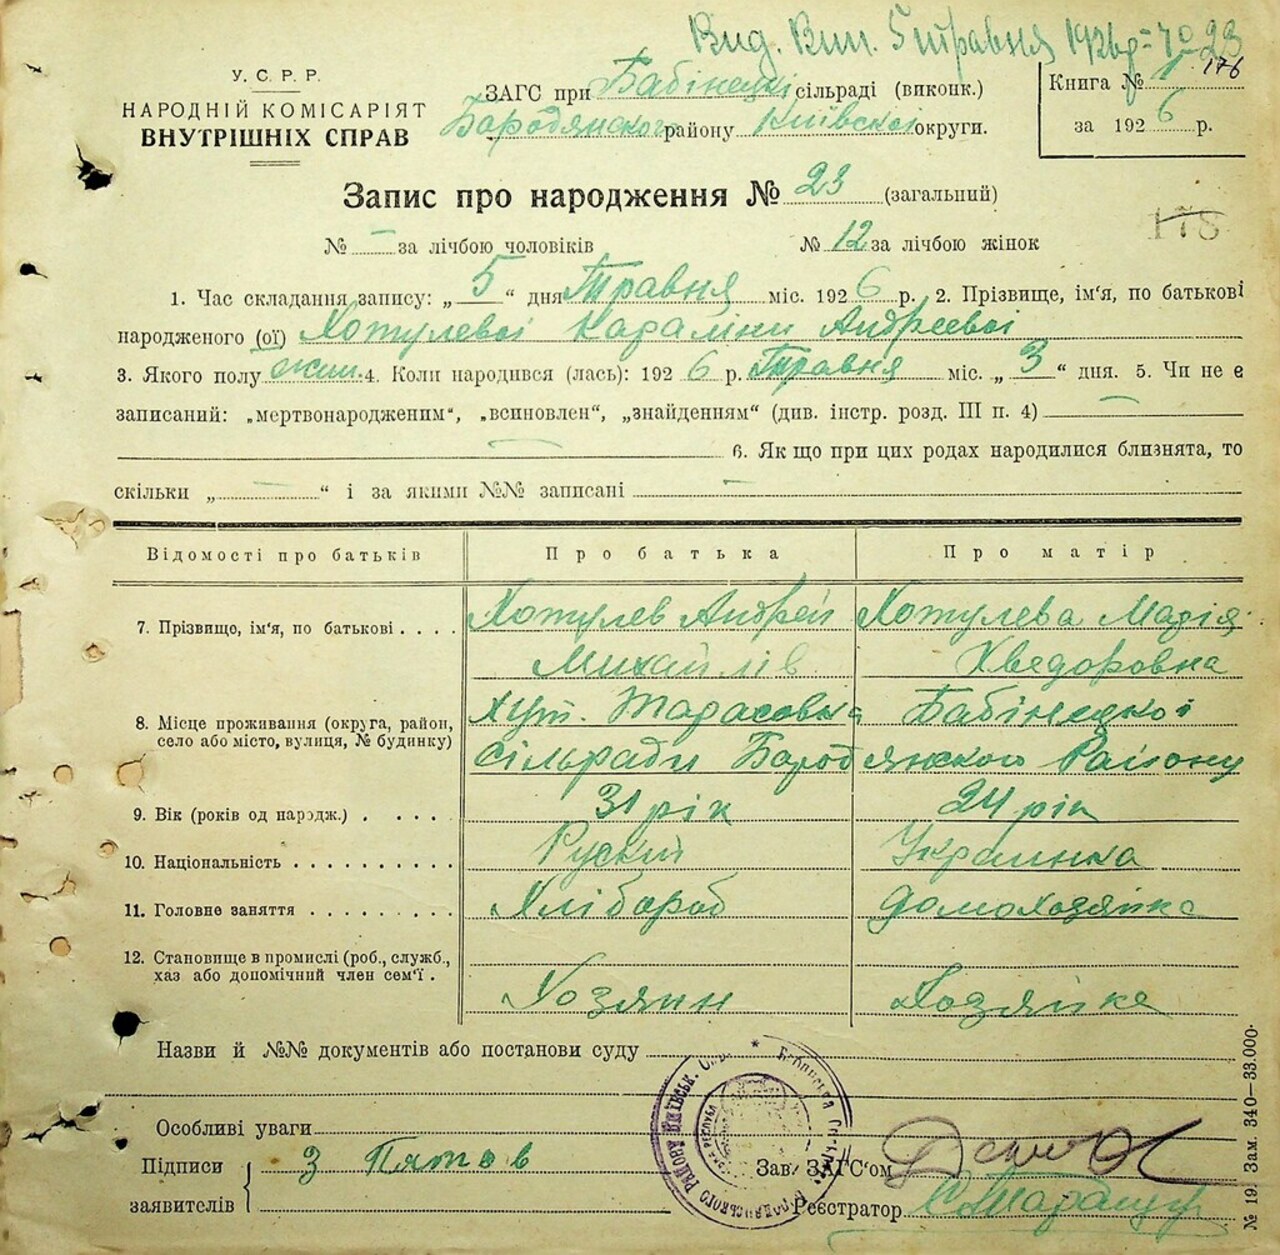 Вид. Вип. 5 травня 1926р. № 23
У. С. Р. Р.
НАРОДНІЙ КОМІСАРІЯТ
ВНУТРІШНІХ СПРАВ
ЗАГС при Бабінецкі сільраді (виконк.)
Бородянского району Київскоі округи.
Книга № 1 176
за 1926 р.
Запис про народження № 23 (загальний)
178
№ – за лічбою чоловіків № 12 за лічбою жінок
1. Час складання запису: „ 5 “ дня Травня міс. 1926 р. 2. Прізвище, ім'я, по батькові
народженого (ої) Хотулевоі Караліни Андреєвоі
3. Якого полу жин. 4. Коли народився (лась): 1926 р. Травня міс. „ 3 “ дня. 5. Чи не є
записаний: „мертвонародженим“, „всиновлен“, „знайденням“ (див. інстр. розд. III п. 4) –
– 6. Як що при цих родах народилися близнята, то
скільки „ – “ і за якими №№ записані –
Відомості про батьків Про батька Про матір
7. Прізвище, ім'я, по батькові . . . . Хотулев Андрей Хотулева Марія
Михайлів Хведоровна
8. Місце проживання (округа, район, хут. Тарасовка Бабінецкоі
село або місто, вулиця, № будинку) сільради Бородянского Району
9. Вік (років од народж.) . . . . . 31 рік 24 рік
10. Національність . . . . . . . . . . Руский Украинка
11. Головне заняття . . . . . . . . . Хлібороб домохозяйка
12. Становище в промислі (роб., служб.,
хаз або допомічний член сем'ї . Хозяин Хозяйка
Назви й №№ документів або постанови суду
Особливі уваги
Підписи
заявителів
Зав. ЗАГС'ом
Реєстратор
№ 19. Зам. 340—33.000.